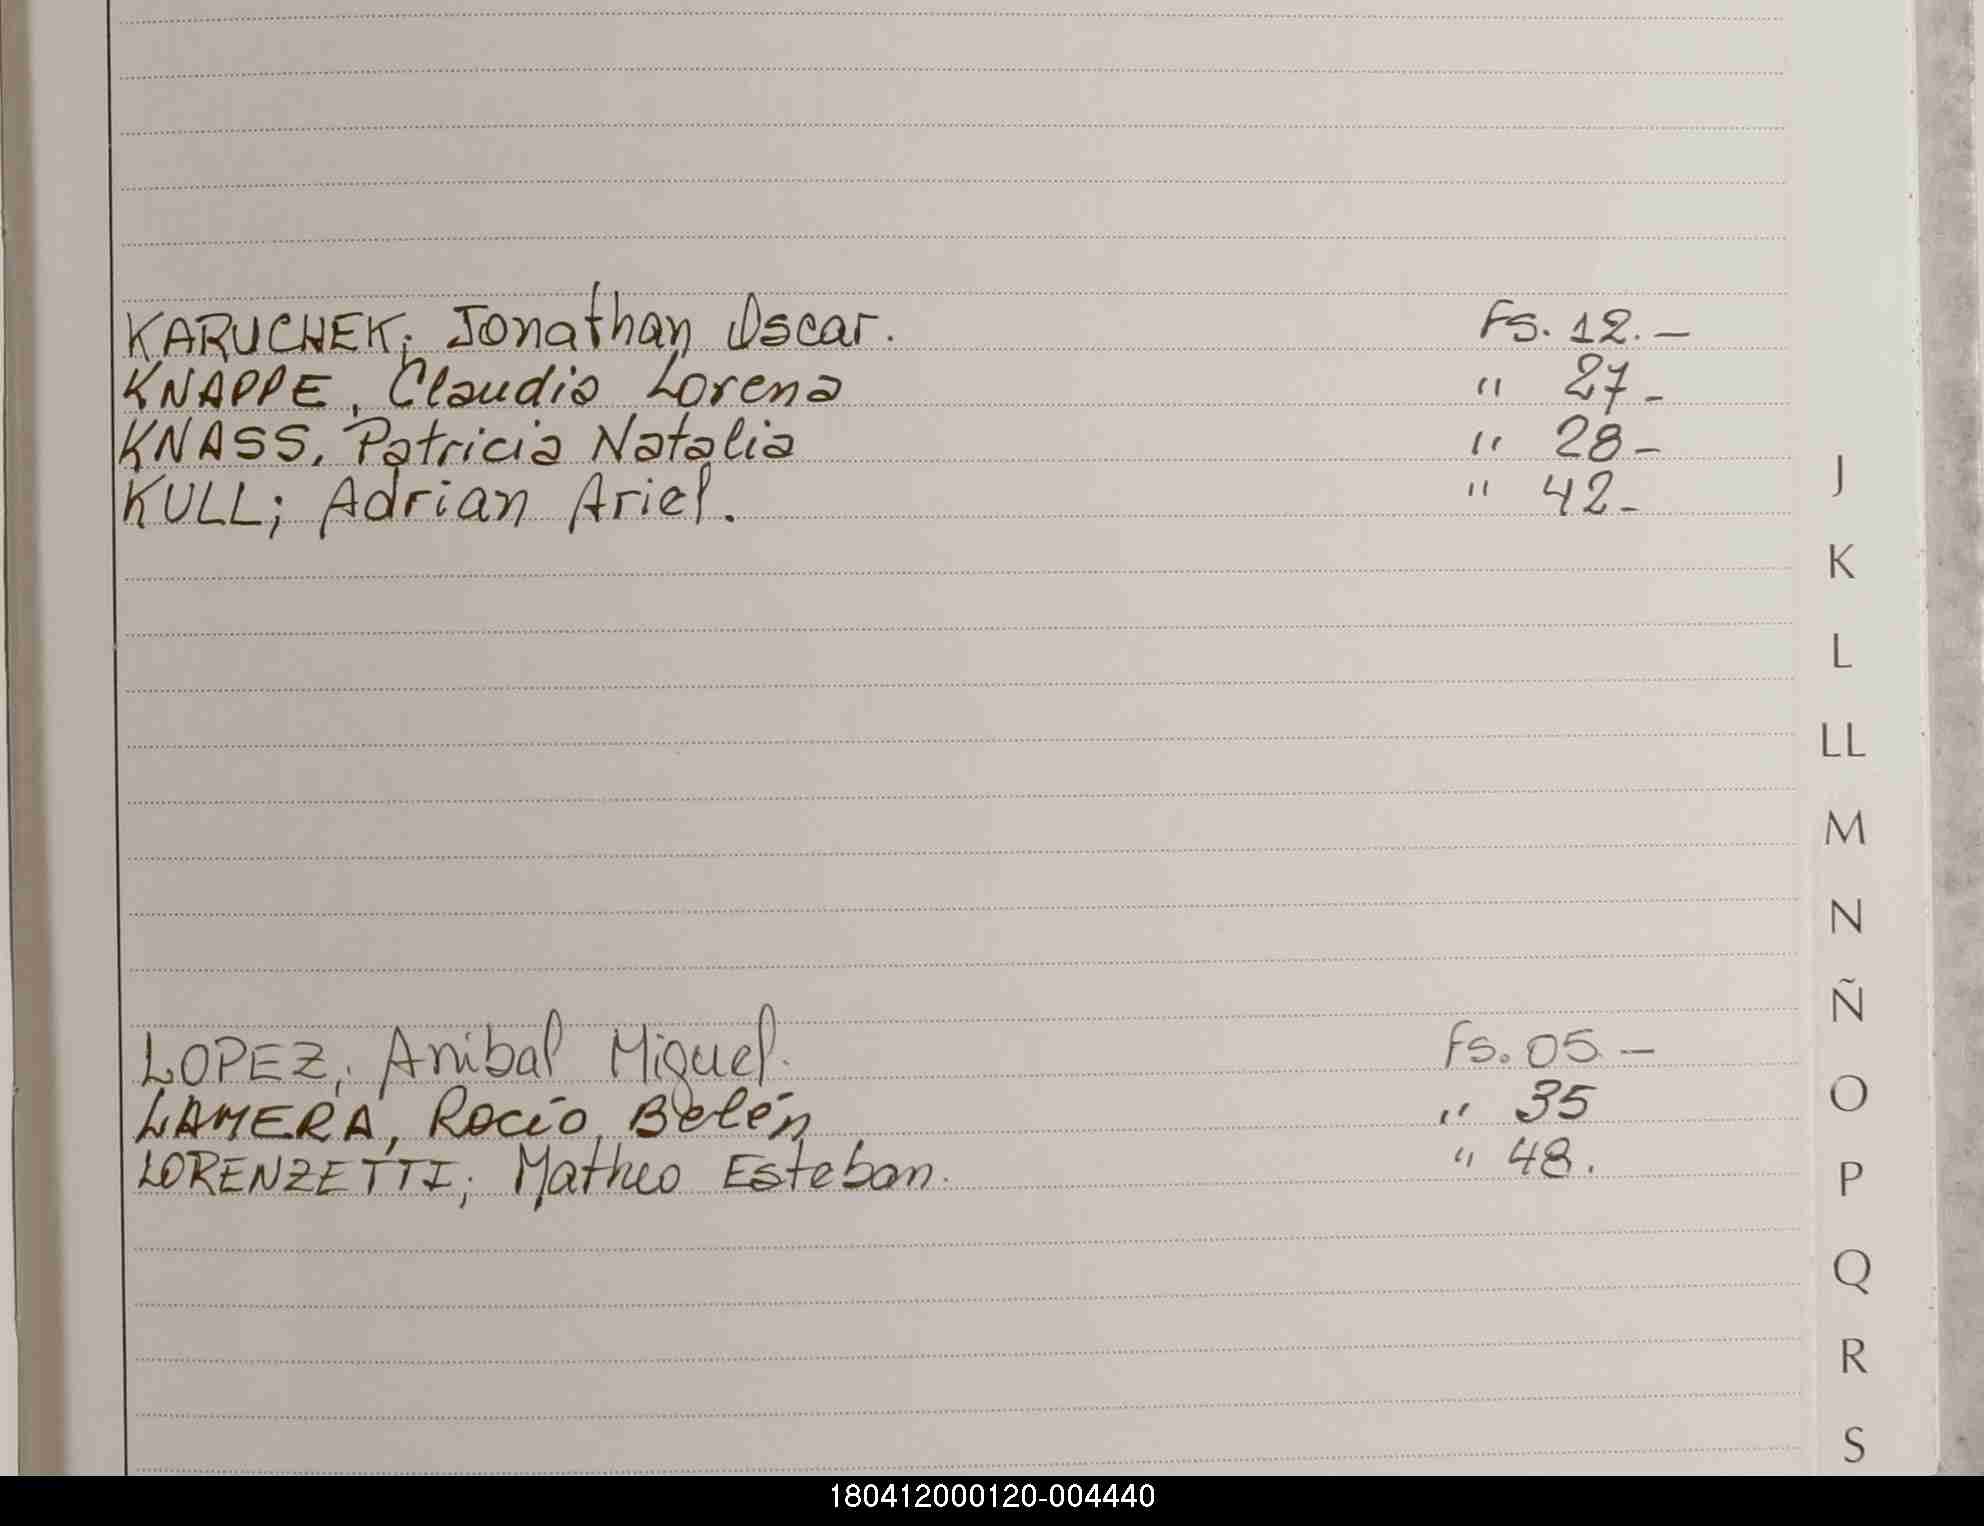 KARUCHEK; Jonathan Oscar. Fs. 12.-
KNAPPE, Claudia Lorena " 27-
KNASS, Patricia Natalia " 28-
KULL; Adrian Ariel. " 42-
J
K
L
LL
M
N
Ñ
LOPEZ; Anibal Miguel. Fs. 05-
O
LAMERA, Rocío Belén " 35
LORENZETTI; Matheo Esteban. " 48.
P
Q
R
S
180412000120-004440